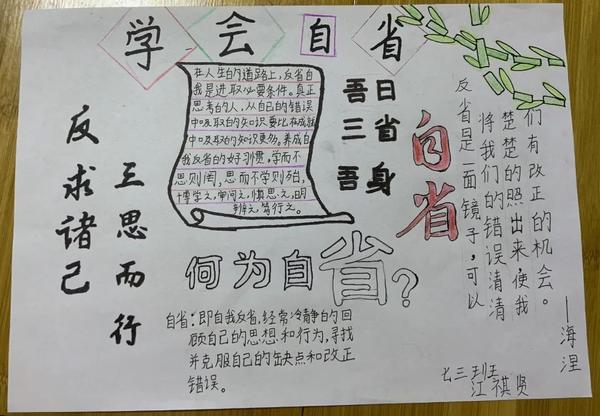 学会自省
在人生的道路上,反省自
我是进取必要条件。真正
思考的人,从自己的错误
中吸取的知识要比在成就
中吸取的知识更多。养成自
我反省的好习惯,学而不
思则罔,思而不学则殆,
博学之,审问之,慎思之,明
辨之,笃行之。
吾日
三省
吾身
自省
反省是一面镜子,可以
将我们的错误清清
楚楚的照出来,使我
们有改正的机会。
——海涅
反求诸己
三思而行
何为自省?
自省:即自我反省,经常冷静的回
顾自己的思想和行为,寻找
并克服自己的缺点和改正
错误。
七三班
江祺贤